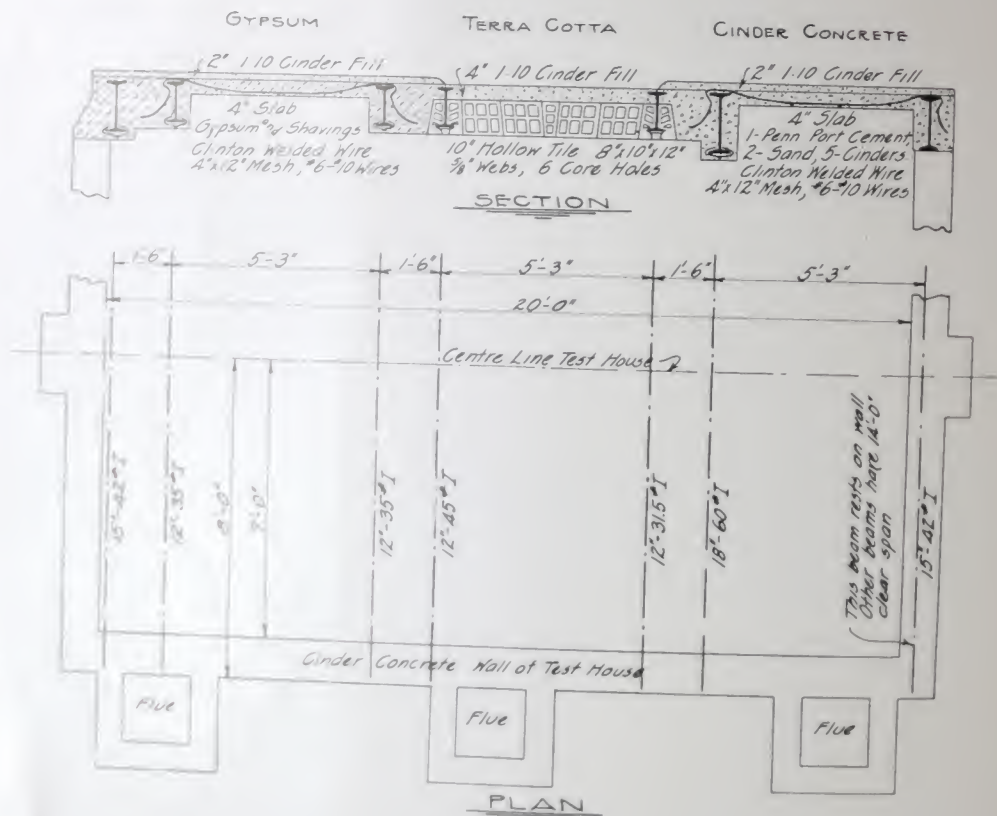 GYPSUM
TERRA COTTA
CINDER CONCRETE
2" 1-10 Cinder Fill
4" 1-10 Cinder Fill
2" 1-10 Cinder Fill
4" Slab
Gypsum and Shavings
Clinton Welded Wire
4"x12" Mesh, #6-#10 Wires
10" Hollow Tile 8"x10"x12"
5/8" Webs, 6 Core Holes
4" Slab
1-Penn Port Cement,
2-Sand, 5-Cinders
Clinton Welded Wire
4"x12" Mesh, #6-#10 Wires
SECTION
1'-6"
5'-3"
1'-6"
5'-3"
1'-6"
5'-3"
20'-0"
Centre Line Test House
15"-42# I
12"-35# I
8'-0"
7'-0"
12"-35# I
12"-45# I
12"-31.5# I
18"-60# I
This beam rests on wall
Other beams have 14'-0"
clear span
15"-42# I
Cinder Concrete Wall of Test House
Flue
Flue
Flue
PLAN